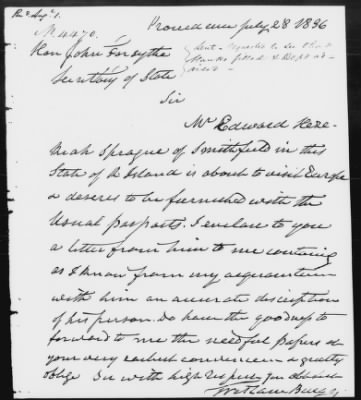 Recd Augt 1.
N 4470.
Providence July 28 1836
Hon John Forsythe
Secretary of State
Sir
Mr Edward Heze-
kiah Sprague of Smithfield in this
State of R Island is about to visit Europe
& desires to be furnished with the
Usual passports. I enclose to you
a letter from him to me containing
as I know from my acquaintance
with him an accurate description
of his person. Do have the goodness to
forward to me the needful papers at
your very earliest convenience & greatly
oblige Sir with high respect your obedient